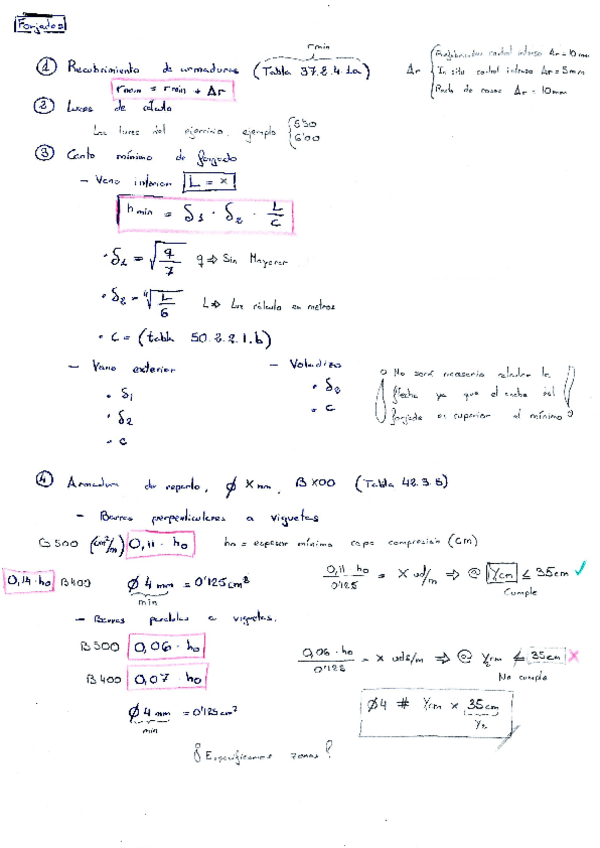 Forjados
rmin
① Recubrimiento de armaduras (Tabla 37.2.4.1a)
rnom = rmin + Δr
Δr { Prefabricados control intenso Δr = 10 mm
In situ control intenso Δr = 5mm
Resto de casos Δr = 10mm
② Luces de cálculo
Las luces del ejercicio, ejemplo { 5'50
6'00
③ Canto mínimo de forjado
- Vano interior L = x
hmin = δ1 · δ2 · L/C
· δ1 = √(q/7) q ⇒ Sin Mayorar
· δ2 = ⁴√(L/6) L ⇒ Luz cálculo en metros
· C = (tabla 50.2.2.1.b)
- Vano exterior
· δ1
· δ2
· C
- Voladizo
· C
¡¡ No será necesario calcular la
flecha ya que el canto del
forjado es superior al mínimo !!
④ Armadura de reparto, ϕ X mm, B X00 (Tabla 42.3.5)
- Barras perpendiculares a viguetas
B500 (cm²/m) 0,11 · h0 h0 = espesor mínimo capa compresión (cm)
0,14 · h0 B400 ϕ 4 mm = 0'125 cm²
min
0,11 · h0 / 0'125 = X ud/m ⇒ @ Ycm ≤ 35cm ✓
Cumple
- Barras paralelas a viguetas.
B500 0,06 · h0
B400 0,07 · h0
0,06 · h0 / 0'125 = x uds/m ⇒ @ Y2cm ≤ 35cm ✗
No cumple
ϕ 4 mm = 0'125cm²
min
ϕ4 # Ycm x 35cm
Y2
¿Especificamos zonas?